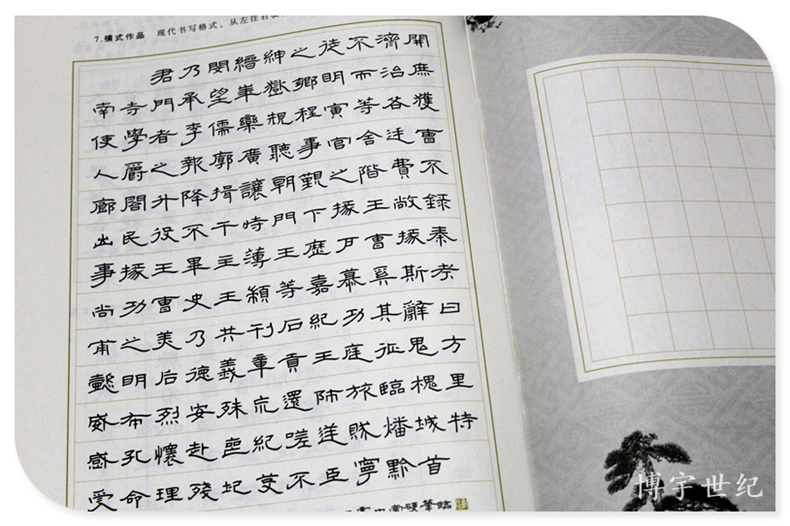 7.横式作品 现代书写格式，从左往右
君乃閔縉紳之徒不濟開
南寺門承望崋嶽鄉明而治庶
使學者李儒欒規程寅等各獲
人爵之報廓廣聽事官舍廷曹
廊閣升降揖讓朝覲之階費不
出民役不干時門下掾王敞錄
事掾王畢主薄王歷戶曹掾秦
尚功曹史王顓等嘉慕奚斯考
甫之美乃共刊石紀功其辭曰
懿明后德義章貢王庭征鬼方
威布烈安殊荒還師旅臨槐里
感孔懷赴喪紀嗟逆賊燔城特
受命理殘圮芟不臣寧黔首
博宇世纪